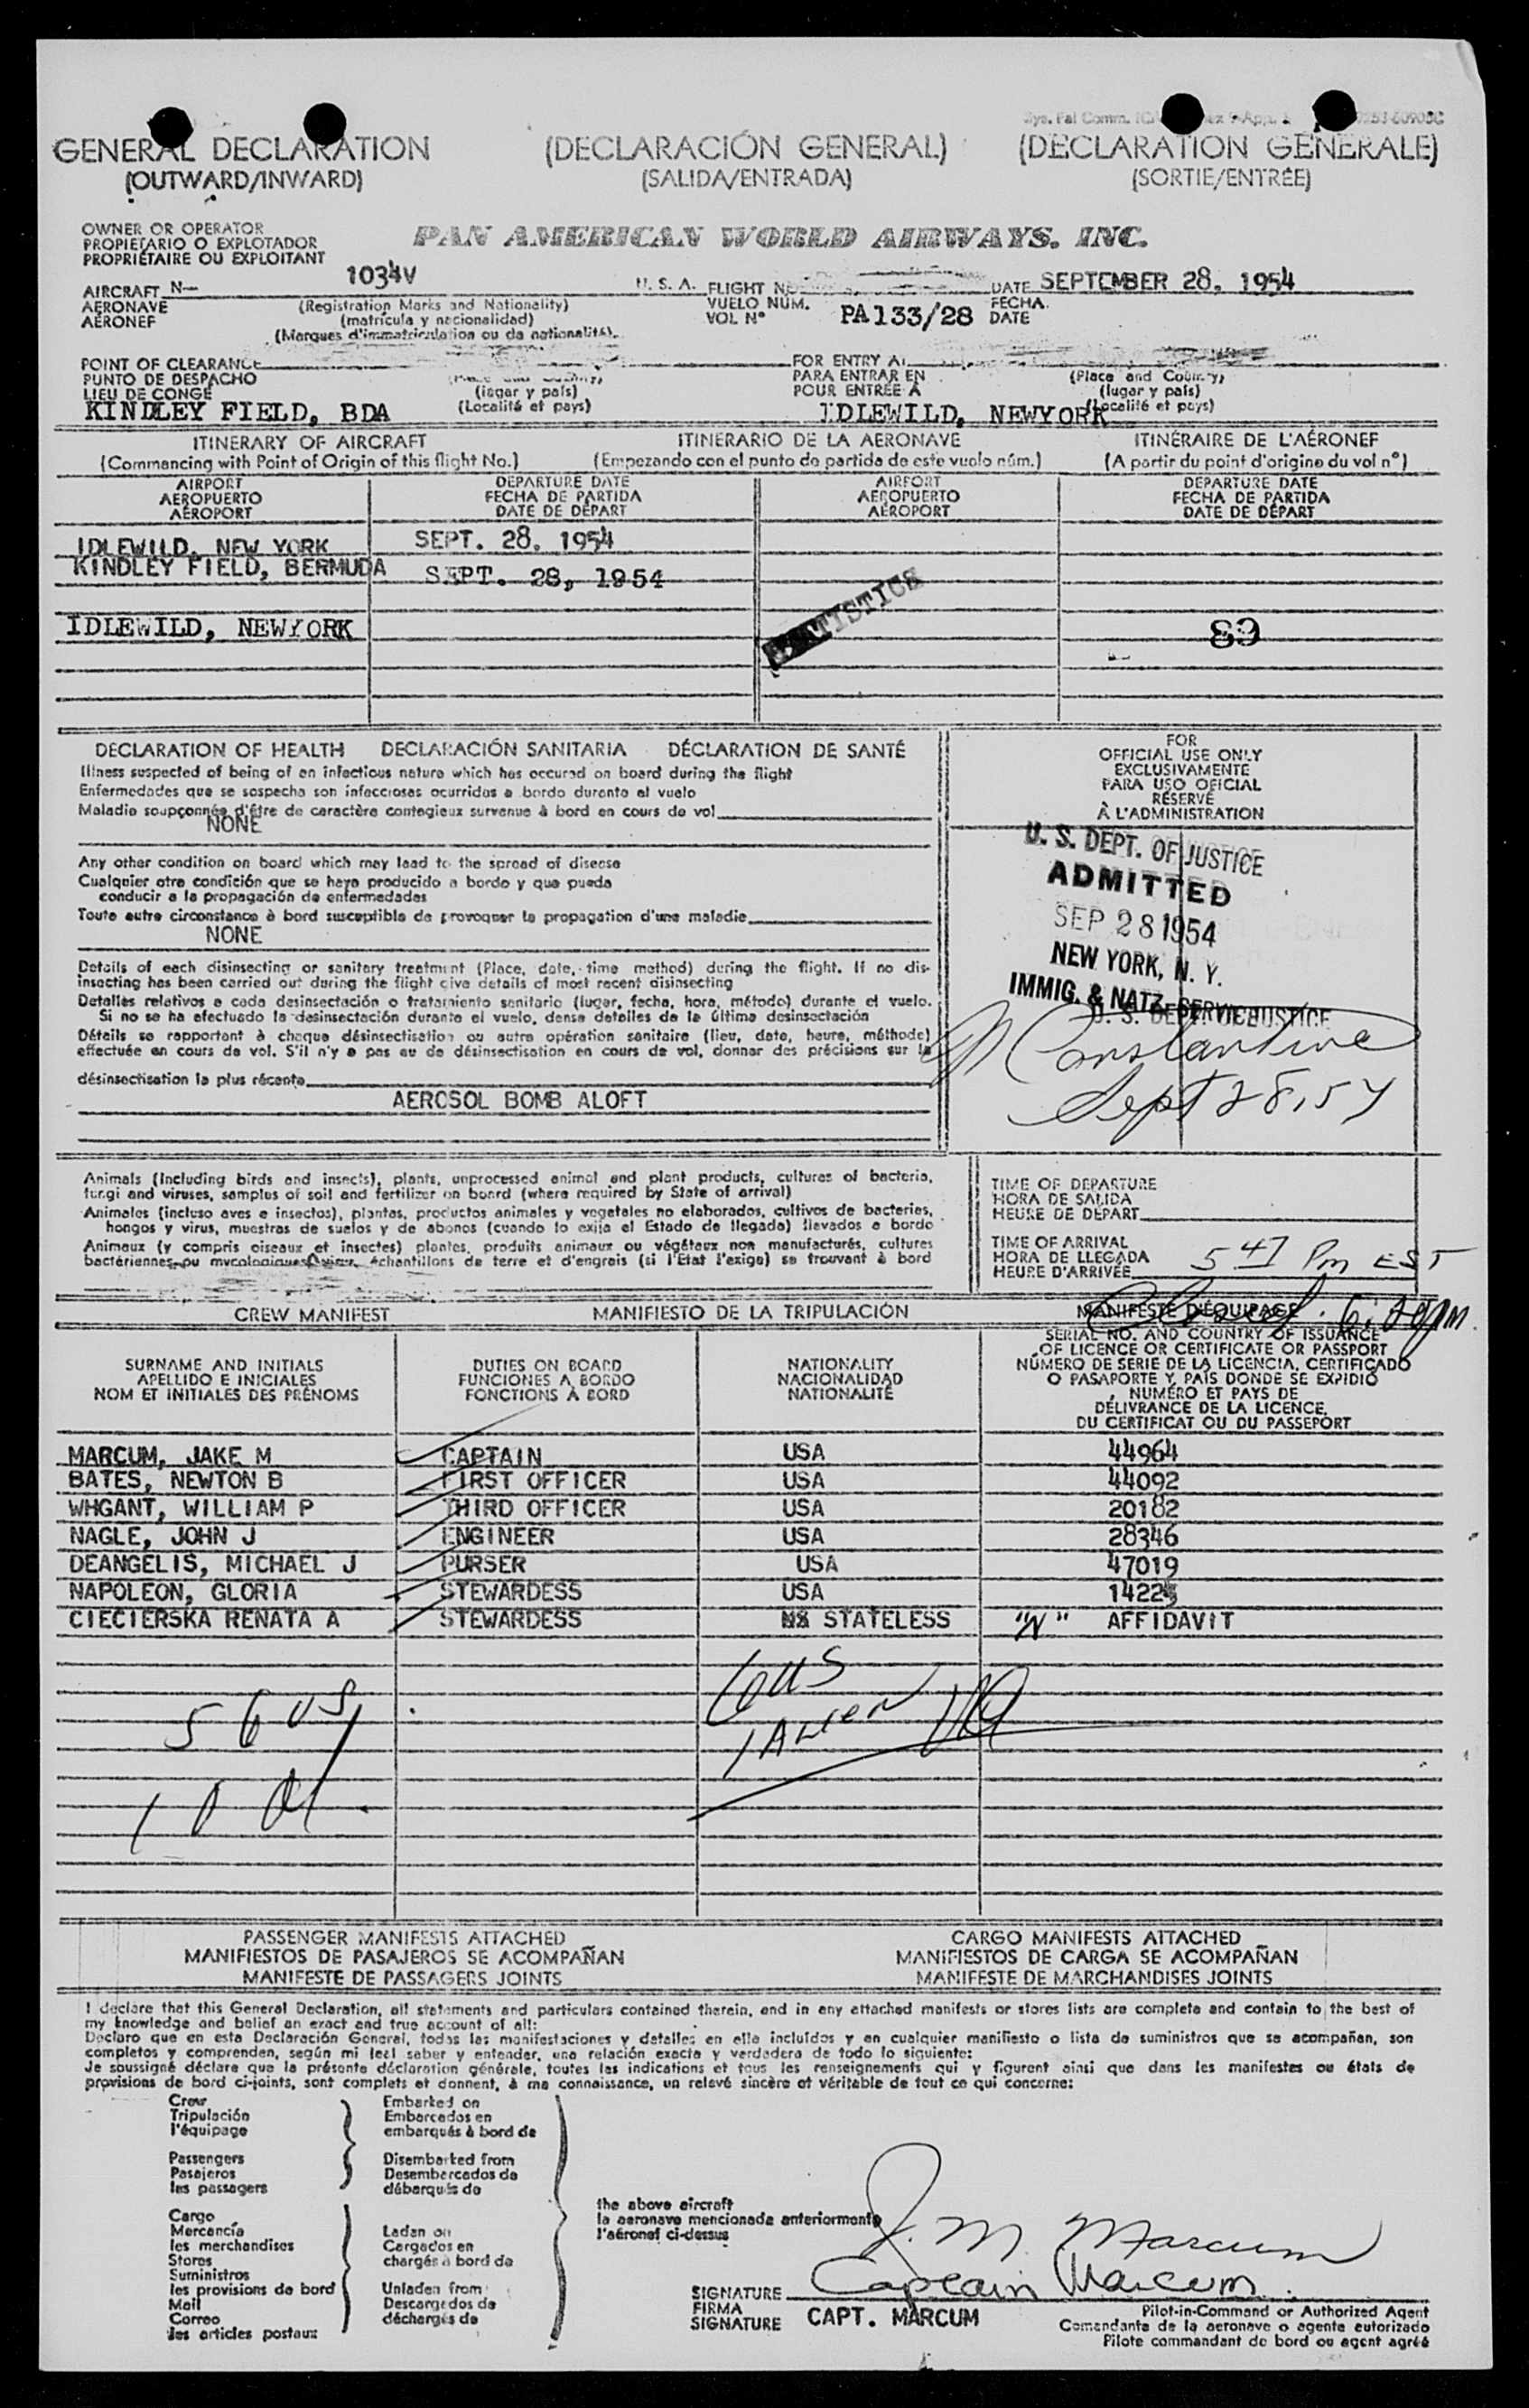 GENERAL DECLARATION
(OUTWARD/INWARD)
(DECLARACIÓN GENERAL)
(SALIDA/ENTRADA)
(DECLARATION GÉNÉRALE)
(SORTIE/ENTRÉE)
OWNER OR OPERATOR
PROPIETARIO O EXPLOTADOR
PROPRIÉTAIRE OU EXPLOITANT
PAN AMERICAN WORLD AIRWAYS, INC.
AIRCRAFT N— 1034V U. S. A.
AERONAVE
AÉRONEF
(Registration Marks and Nationality)
(matrícula y nacionalidad)
(Marques d'immatriculation ou de nationalité)
FLIGHT
VUELO NUM.
VOL N° PA133/28
DATE SEPTEMBER 28, 1954
FECHA
DATE
POINT OF CLEARANCE
PUNTO DE DESPACHO
LIEU DE CONGÉ
KINDLEY FIELD, BDA
(lugar y país)
(Localité et pays)
FOR ENTRY AT
PARA ENTRAR EN
POUR ENTRÉE À
IDLEWILD, NEWYORK
(Place and Country)
(lugar y país)
(Localité et pays)
ITINERARY OF AIRCRAFT
(Commencing with Point of Origin of this flight No.)
ITINERARIO DE LA AERONAVE
(Empezando con el punto de partida de este vuelo núm.)
ITINÉRAIRE DE L'AÉRONEF
(A partir du point d'origine du vol n°)
AIRPORT
AEROPUERTO
AÉROPORT
DEPARTURE DATE
FECHA DE PARTIDA
DATE DE DÉPART
AIRPORT
AEROPUERTO
AÉROPORT
DEPARTURE DATE
FECHA DE PARTIDA
DATE DE DÉPART
IDLEWILD, NEW YORK SEPT. 28, 1954
KINDLEY FIELD, BERMUDA SEPT. 28, 1954
STATISTICS
IDLEWILD, NEWYORK
89
DECLARATION OF HEALTH DECLARACIÓN SANITARIA DÉCLARATION DE SANTÉ
Illness suspected of being of an infectious nature which has occured on board during the flight
Enfermedades que se sospecha son infecciosas ocurridas a bordo durante el vuelo
Maladie soupçonnée d'être de caractère contagieux survenue à bord en cours de vol
NONE
Any other condition on board which may lead to the spread of disease
Cualquier otra condición que se haya producido a bordo y que pueda
conducir a la propagación de enfermedades
Toute autre circonstance à bord susceptible de provoquer la propagation d'une maladie
NONE
Details of each disinsecting or sanitary treatment (Place, date, time method) during the flight. If no dis-
insecting has been carried out during the flight give details of most recent disinsecting
Detalles relativos a cada desinsectación o tratamiento sanitario (lugar, fecha, hora, método) durante el vuelo.
Si no se ha efectuado la desinsectación durante el vuelo, dense detalles de la última desinsectación
Détails se rapportant à chaque désinsectisation ou autre opération sanitaire (lieu, date, heure, méthode)
effectuée en cours de vol. S'il n'y a pas eu de désinsectisation en cours de vol, donner des précisions sur la
désinsectisation la plus récente
AEROSOL BOMB ALOFT
FOR
OFFICIAL USE ONLY
EXCLUSIVAMENTE
PARA USO OFICIAL
RÉSERVÉ
À L'ADMINISTRATION
U. S. DEPT. OF JUSTICE
ADMITTED
SEP 28 1954
NEW YORK, N. Y.
IMMIG. & NATZ. SERVICE
U. S. DEPT. OF JUSTICE
Constantine
Sept 28, 54
Animals (Including birds and insects), plants, unprocessed animal and plant products, cultures of bacteria,
fungi and viruses, samples of soil and fertilizer on board (where required by State of arrival)
Animales (incluso aves e insectos), plantas, productos animales y vegetales no elaborados, cultivos de bacterias,
hongos y virus, muestras de suelos y de abonos (cuando lo exija el Estado de llegada) llevados a bordo
Animaux (y compris oiseaux et insectes) plantes, produits animaux ou végétaux non manufacturés, cultures
bactériennes ou mycologiques, virus, échantillons de terre et d'engrais (si l'Etat l'exige) se trouvant à bord
TIME OF DEPARTURE
HORA DE SALIDA
HEURE DE DÉPART
TIME OF ARRIVAL
HORA DE LLEGADA
HEURE D'ARRIVÉE
5 47 Pm EST
CREW MANIFEST MANIFIESTO DE LA TRIPULACIÓN MANIFESTE D'ÉQUIPAGE
Closed
SURNAME AND INITIALS
APELLIDO E INICIALES
NOM ET INITIALES DES PRÉNOMS
DUTIES ON BOARD
FUNCIONES A BORDO
FONCTIONS À BORD
NATIONALITY
NACIONALIDAD
NATIONALITÉ
SERIAL NO. AND COUNTRY OF ISSUANCE
OF LICENCE OR CERTIFICATE OR PASSPORT
NÚMERO DE SERIE DE LA LICENCIA, CERTIFICADO
O PASAPORTE Y PAÍS DONDE SE EXPIDIÓ
NUMÉRO ET PAYS DE
DÉLIVRANCE DE LA LICENCE,
DU CERTIFICAT OU DU PASSEPORT
MARCUM, JAKE M CAPTAIN USA 44964
BATES, NEWTON B FIRST OFFICER USA 44092
WHGANT, WILLIAM P THIRD OFFICER USA 20182
NAGLE, JOHN J ENGINEER USA 28346
DEANGELIS, MICHAEL J PURSER USA 47019
NAPOLEON, GLORIA STEWARDESS USA 14225
CIECIERSKA RENATA A STEWARDESS STATELESS "N" AFFIDAVIT
6 US
1 ALIEN
5 6 US
PASSENGER MANIFESTS ATTACHED
MANIFIESTOS DE PASAJEROS SE ACOMPAÑAN
MANIFESTE DE PASSAGERS JOINTS
CARGO MANIFESTS ATTACHED
MANIFIESTOS DE CARGA SE ACOMPAÑAN
MANIFESTE DE MARCHANDISES JOINTS
I declare that this General Declaration, all statements and particulars contained therein, and in any attached manifests or stores lists are complete and contain to the best of
my knowledge and belief an exact and true account of all:
Declaro que en esta Declaración General, todas las manifestaciones y detalles en ella incluídos y en cualquier manifiesto o lista de suministros que se acompañan, son
completos y comprenden, según mi leal saber y entender, una relación exacta y verdadera de todo lo siguiente:
Je soussigné déclare que la présente déclaration générale, toutes les indications et tous les renseignements qui y figurent ainsi que dans les manifestes ou états de
provisions de bord ci-joints, sont complets et donnent, à ma connaissance, un relevé sincère et véritable de tout ce qui concerne:
Crew
Tripulación
l'équipage
Passengers
Pasajeros
les passagers
Cargo
Mercancía
les merchandises
Stores
Suministros
les provisions de bord
Mail
Correo
les articles postaux
Embarked on
Embarcados en
embarqués à bord de
Disembarked from
Desembarcados de
débarqués de
Laden on
Cargados en
chargés à bord de
Unladen from
Descargados de
déchargés de
the above aircraft
la aeronave mencionada anteriormente
l'aéronef ci-dessus
J. M. Marcum
Captain Marcum
SIGNATURE
FIRMA
SIGNATURE
CAPT. MARCUM
Pilot-in-Command or Authorized Agent
Comandante de la aeronave o agente autorizado
Pilote commandant de bord ou agent agréé